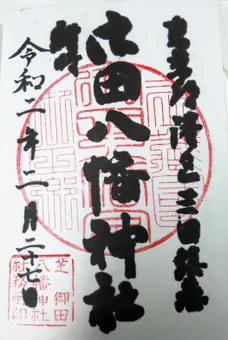 港区三田鎮座
御田八幡神社
令和二年二月二十七日
芝 御田
八幡神社
社務所印